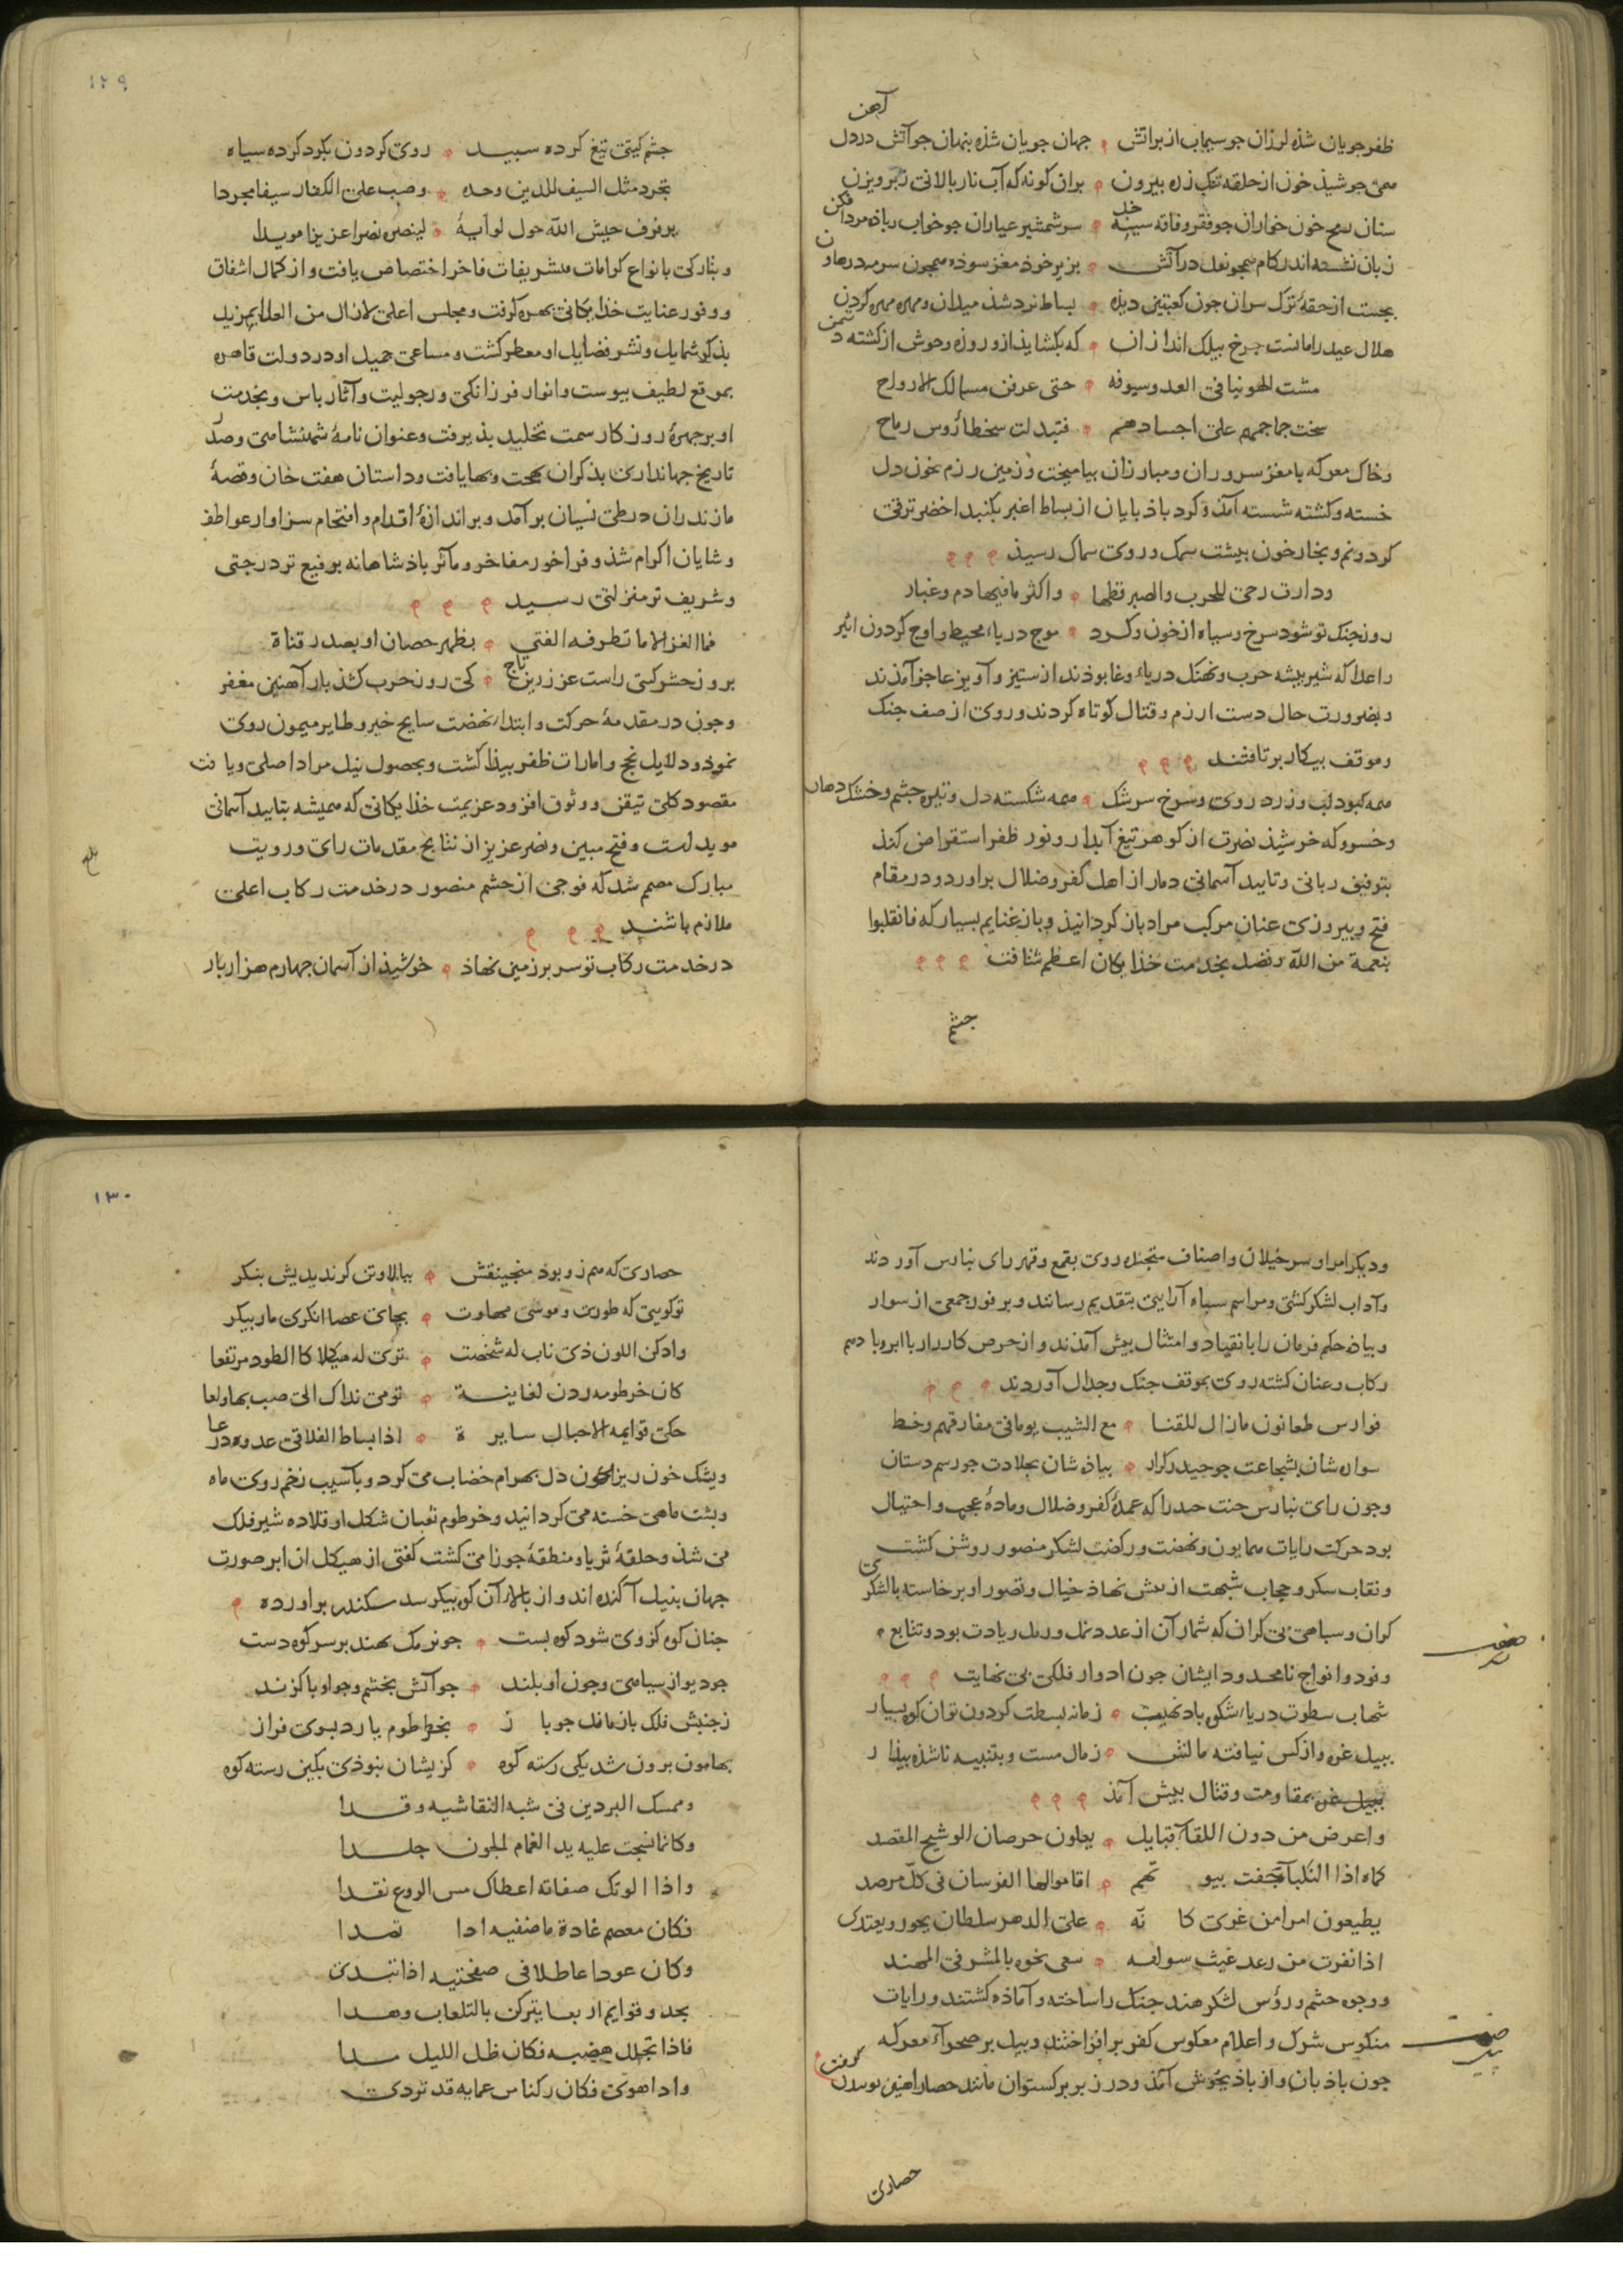 آهن
ظفر جویان شذه لرزان جو سیماب از بر آتش جهان جویان شذه پنهان جو آتش در دل
همی جوشیذ خون از حلقه تنک زره بیرون بران کونه که آب نار بالائی ز برویزن
سنان رمح خون خواران جو فقر و فاقه سینه سر شمشیر عیاران جو خواب باذه مرد
زبان نشسته اندر کام همجو نعل در آتش بزیر خوذ مغز سوذه همجون سرمه در هاون
بجست از حقهٔ ترک سران جون کعبتین دیذه بساط نرد شذ میدان و مهره مهره کردن
هلال عید را مانست جرخ بیلک انداز ان که بکشایذ ازو روزه وحوش از کشته دشمن
مشت الهوینا فی العد وسیوفه حتی عرفن مسالک الارواح
سخت جماجمهم علی اجسادهم فتبدلت سخطا رؤس رماح
و خاک معرکه با مغز سروران و مبارزان بیامیخت و زمین رزم بخون دل
خسته و کشته شسته آمذ و کرد باذبایان از بساط اغبر بکنبد اخضر ترقی
کرد و نم و بخار خون ببشت سمک و روی سماک رسیذ
ودارت رحی للحرب والصبر قطبها واکثر ما فیها دم وغبار
روز جنک تو شود سرخ و سیاه از خون و کرد موج دریاء محیط و اوج کردون اثیر
و اعدا که شیر بیشه حرب و نهنک دریاء وغا بوذند از ستیز و آویز عاجز آمذند
و بضرورت حال دست از رزم و قتال کوتاه کردند و روی از صف جنک
و موقف بیکار برتافتند
همه کبود لب و زرد روی و سرخ سرشک همه شکسته دل و تیره جشم و خشک دهان
و خسرو که خرشیذ نصرت از کوهر تیغ آبدار و نور ظفر استقراض کند
بتوفیق ربانی و تایید آسمانی دمار از اهل کفر و ضلال براورد و در مقام
فتح و بیروزی عنان مرکب مراد باز کردانیذ و با غنایم بسیار که فانقلبوا
بنعمة من الله وفضل بخدمت خذایکان اعظم شتافت
جشم
۱۲۹
جشم کیتی تیغ کرده سبید روی کردون بکود کرده سیاه
تجرد مثل السیف للدین وحده وصب علی الکفار سیفا مجردا
یرفرف جیش الله حول لوایه لینصره نصرا عزیزا مویدا
و بتارکی بانواع کرامات و تشریفات فاخر اختصاص یافت و از کمال اشفاق
و وفور عنایت خذایکانی بهره کرفت و مجلس اعلی لازال من العلا بمزید
بذکر شمایل و نشر فضایل او معطر کشت و مساعی جمیل او در دولت قاهره
بموقع لطیف بیوست و انوار فرزانکی و رجولیت و آثار باس و نجدت
او بر جهرهٔ روزکار سمت تخلید بذیرفت و عنوان نامهٔ شهنشاهی و صدر
تاریخ جهانداری بذکر ان بهجت و بها یافت و داستان هفت خان و قصهٔ
مازندران در طی نسیان برآمد و بر اندازهٔ اقدام و اقتحام سزاوار عواطف
و شایان اکرام شذ و فراخور مفاخر و مآثر باذشاهانه برفیع تر درجتی
و شریف تر منزلتی رسید
فما الفخر الا ما تطرفه الفتی بظهر حصان او بصدر قناة
بروز حشر کسی راست عز زرین تاج کی روز حرب کشذ بار آهنین مغفر
و جون در مقدمهٔ حرکت و ابتداء نهضت سایح خیر و طایر میمون روی
نموذ و دلایل نجح و امارات ظفر بیذا کشت و بحصول نیل مراد اصلی و یافت
مقصود کلی تیقن و وثوق افزود عزیمت خذایکانی که همیشه بتایید آسمانی
موید است و فتح مبین و نصر عزیز از نتایج مقدمات رای و رویت
مبارک مصمم شد که فوجی از حشم منصور در خدمت رکاب اعلی
ملازم باشند
در خدمت رکاب تو سر بر زمین نهاذ خورشیذ از آسمان جهارم هزار بار
و دیکر امرا و سرخیلان و اصناف متجنده روی بقمع و قهر رای بنارس آوردند
و آداب لشکر کشی و مراسم سپاه آرایی بتقدیم رسانند و بر فور جمعی از سوار
و بیاذه حکم فرمان را بانقیاد و امتثال بیش آمذند و از حرص کارزار با ابرو باد هم
رکاب و عنان کشته روی بموقف جنک و جدال آوردند
فوارس طعانون مازال للقنا مع الشیب یوما فی مفارقهم وخط
سواره شان بشجاعت جو حیدر کرار بیاذه شان بجلادت جو رستم دستان
و جون رای بنارس جیت جند را که عمدهٔ کفر و ضلال و مادهٔ عجب و احتیال
بود حرکت رایات همایون و نهضت و رکضت لشکر منصور روشن کشت
و نقاب سکر و حجاب شبهت از بیش نهاذ خیال و تصور او برخاست با لشکری
کران و سباهی بی کران که شمار آن از عدد نمل و رمل زیادت بود و تتابع
وفود و افواج نامحدود ایشان جون ادوار فلکی بی نهایت
شهاب سطوت دریا شکوه باد نهیب زمانه بسطت کردون توان کوه بسیار
ببیل غره و از کس نیافته مالش زمال مست و بتنبیه ناشذه بیدار
بمقاومت و قتال بیش آمذ
واعرض من دون اللقاء قبایل یعلون خرصان الوشیج المقصد
کماه اذا النکباء حفت بیوتهم اقاموا لها الفرسان فی کل مرصد
یطیعون امرا من غوی کانه علی الدهر سلطان یجور ویعتدی
اذا نفرت من رعد غیث سوامه سعی نحوه بالمشرفی المهند
و وجوه حشم و رؤس لشکر هند جنک را ساخته و آماذه کشتند و رایات
منکوس شرک و اعلام معکوس کفر بر افراختند و بیل بر صحراء معرکه
جون باذبان و از باذ بجوش آمذ و در زیر برکستوان مانند حصار اهنین
حصاری
۱۳۰
حصاری که هم زو بود منجنیقش ببالا و تن کر ندیدیش بنکر
تو کویی که طورست و موسی مهاوت بجای عصا انکری مار بیکر
وادکن اللون ذی ناب له شخصت تری له هیکلا کالطود مرتفعا
کان خرطومه ردن لغانیة تومی نداک الی صب بها ولعا
حکی قوایمه الاجبال سایرة اذا بساط الفلا فی عدوه ذرعا
و یشک خون ریز او از خون دل بهرام خضاب می کرد و باسیب زخم روی ماه
و بشت ماهی خسته می کردانید و خرطوم ثعبان شکل او قلاده شیر فلک
می شذ و حلقهٔ ثریا و منطقهٔ جوزا می کشت کفتی از هیکل ان ابر صورت
جهان بنیل آکنده اند و از بالاء آن کوه بیکر سد سکندر براورده
جنان کوه کز وی شود کوه بست جو نرمک بنهد بر سر کوه دست
جو دیو از سیاهی و جون او بلند جو آتش بخشم و جو او با کزند
ز جنبش فلک باز مانذ جو باز بخرطوم یارد بسوی فراز
بهامون برون شد یکی رسته کوه کزیشان نبوذی بکین رسته کوه
وممسک البردین فی شبه النقا شیه وقدا
وکانما نسجت علیه ید الغمام الجون جلدا
واذا الوتک صفاته اعطاک مس الروع نقدا
فکان معصم غادة ماضغیه اذا تصدا
وکان عودا عاطلا فی صفحتیه اذا تبدی
یحدو قوایم اربعا یترکن بالتلعات وهدا
فاذا تجلل هضبه فکان ظل اللیل مدا
واذا هوی فکان رکنا من عمایه قد تردی